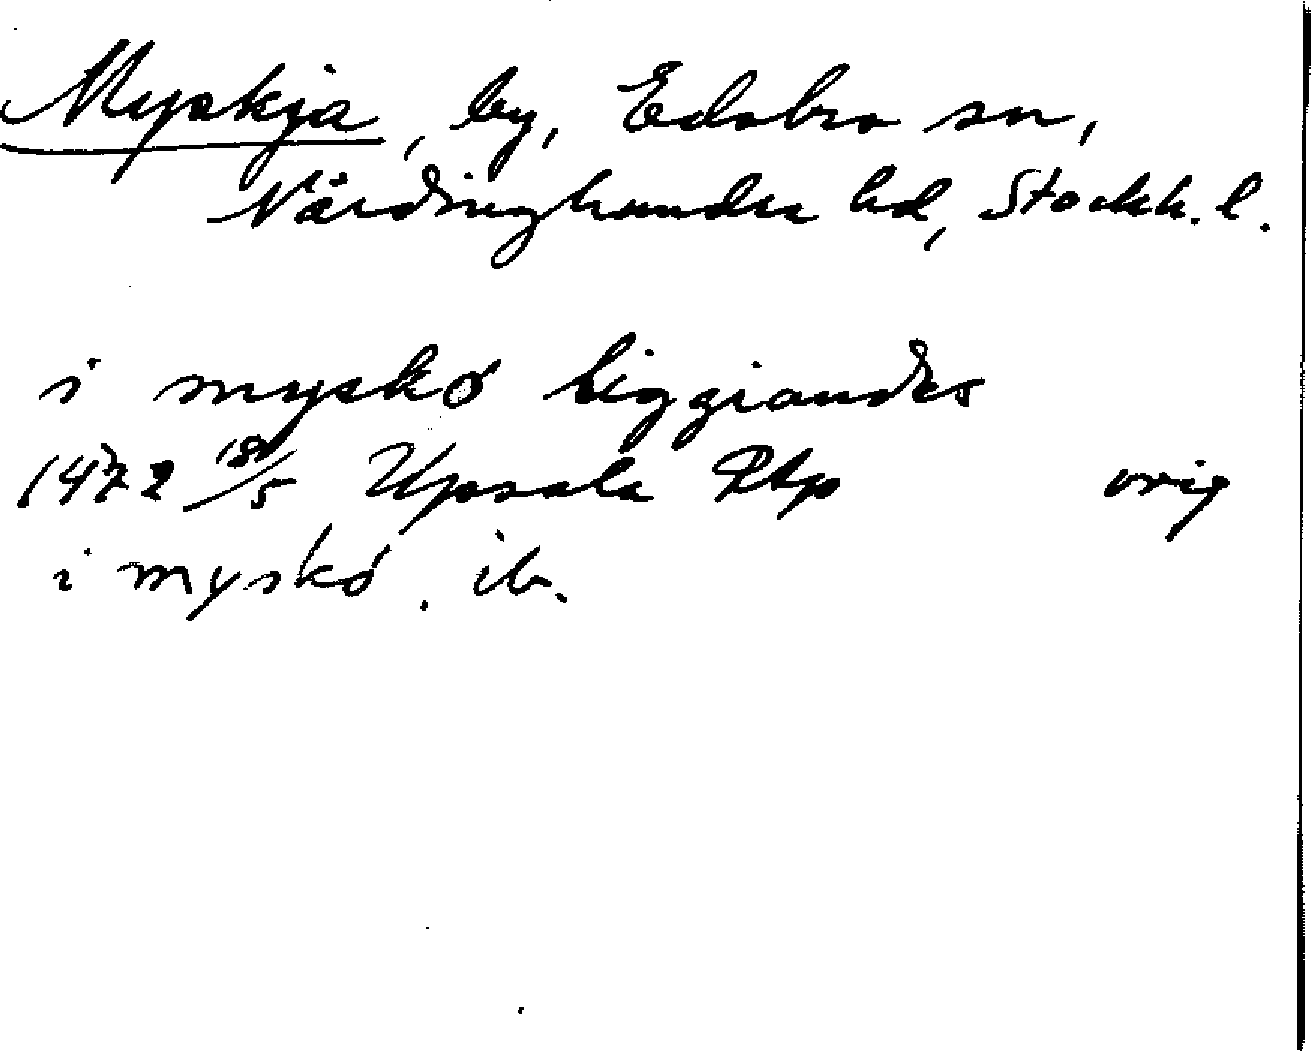 Myskja, by, Edobro sn,
Närdinghundra hd, Stockh. l.
i myskó liggiandes
1472 18/5 Upsala RAp orig
i myskó. ib.